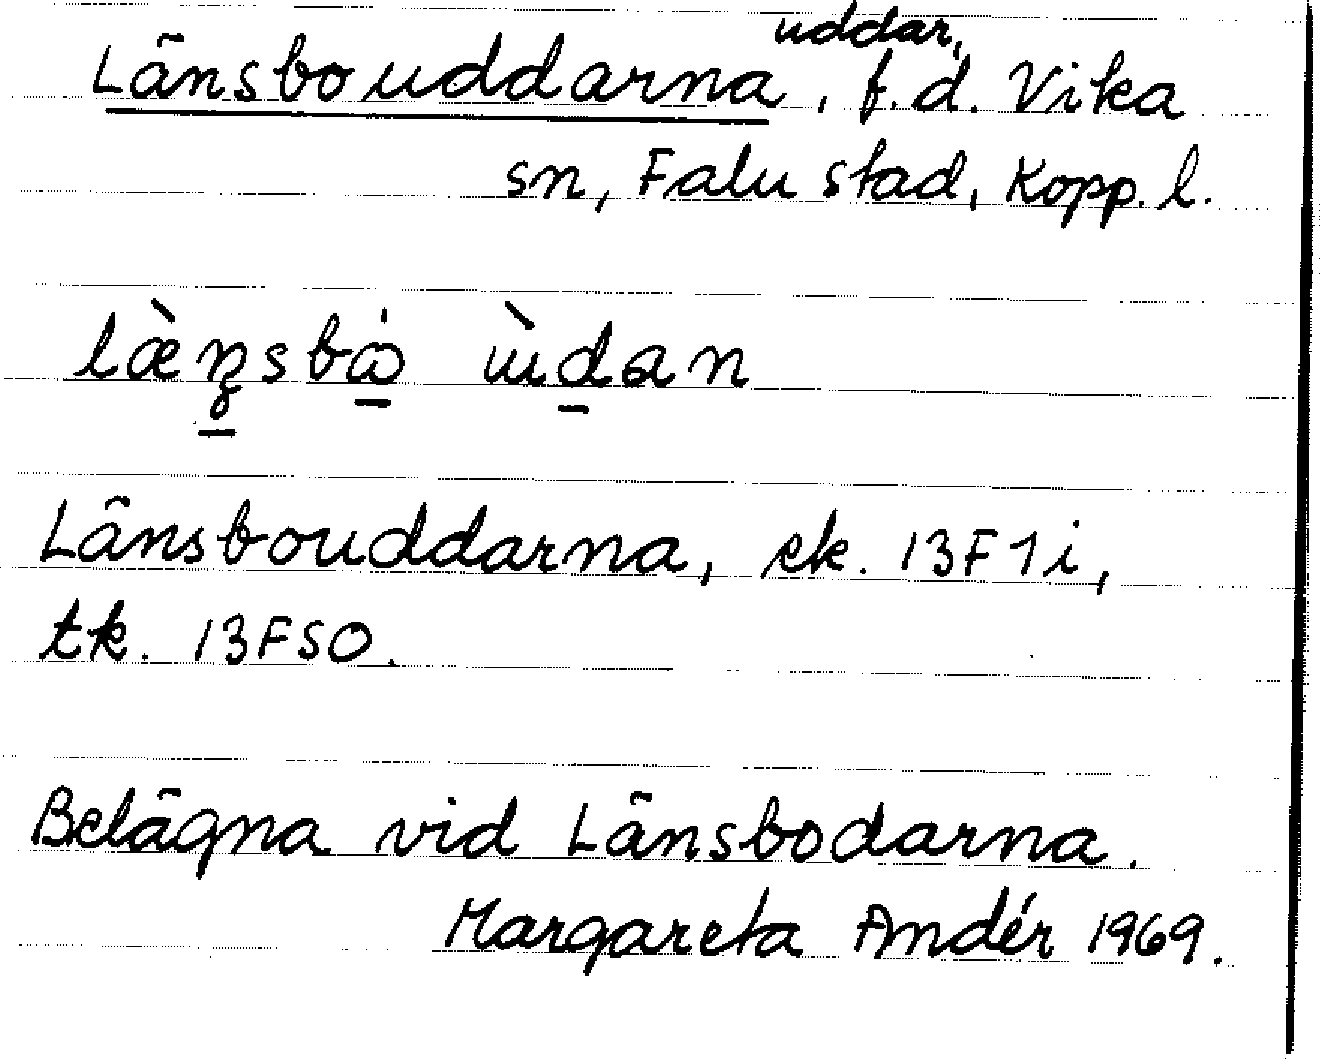 Länsbouddarna, uddar, f.d. Vika
sn, Falu stad, Kopp. l.
Länsbouddarna, ek. 13F1i,
tk. 13FSO.
Belägna vid Länsbodarna.
Margareta Andér 1969.